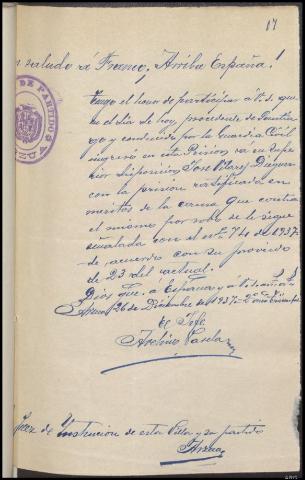 17
saludo á Franco; Arriba España!
DE PARTIDO
ARZUA
Tengo el honor de participar a V.S. que
en el dia de hoy, procedente de Santia-
go y conducido por la Guardia Civil
ingresó en esta Prision, a su supe-
rior disposición, José Vilares Dieguez
con la prision ratificada en
meritos de la causa que contra
el mismo por robo se le sigue
señalada con el nº 74 de 1937-
de acuerdo con su proveido
de 23 del actual.
Dios gue. á España y a V.S. m. a.
Arzua 26 de Diciembre de 1937- 2º año Triunfal
El Jefe
Avelino Varela
Juez de Instrucion de esta Villa y su partido
Arzua